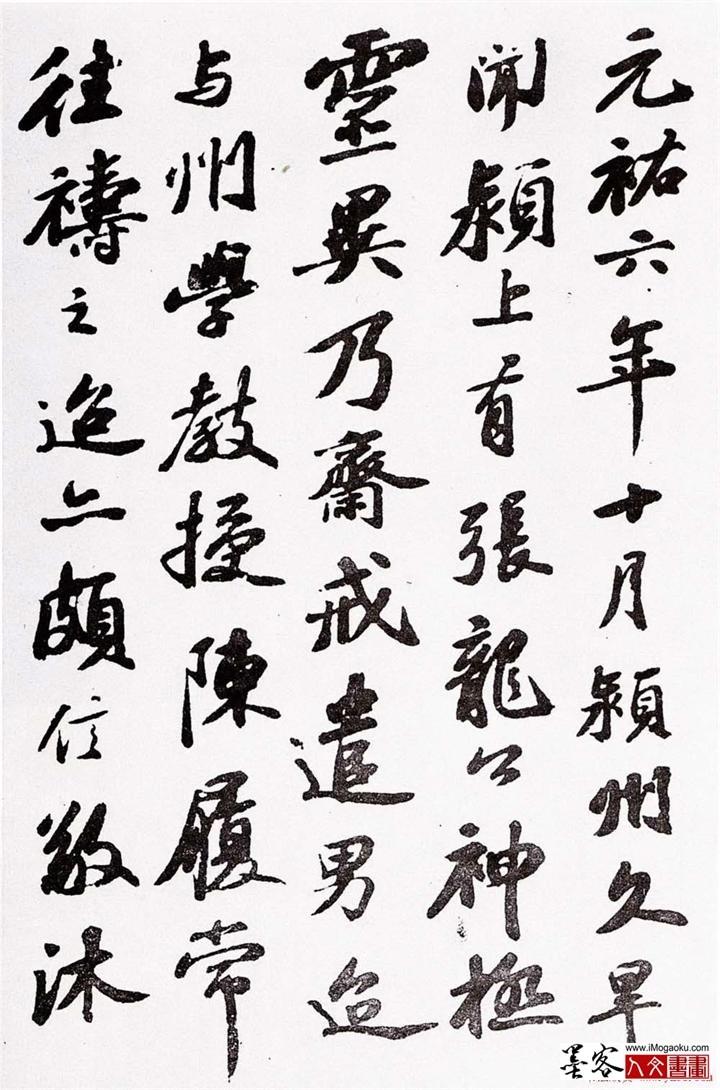 元祐六年十月潁州久旱
聞潁上有張龍公神極
靈異乃齋戒遣男迨
与州學教授陳履常
往禱之迨亦頗信敬沐
墨客
www.iMogaoku.com
人文書畫